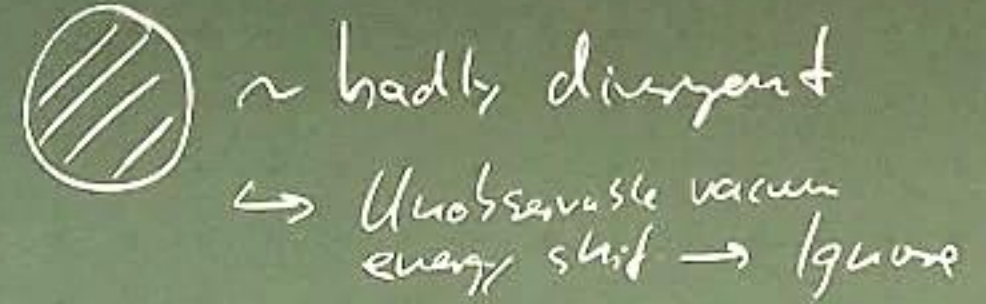 ~ badly divergent
↪ Unobservable vacuum
energy shift → Ignore